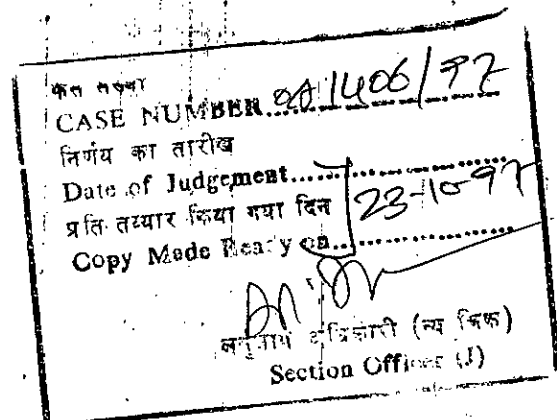 केस संख्या
CASE NUMBER OA 1406/97
निर्णय का तारीख
Date of Judgement
प्रति तय्यार किया गया दिन 23-10-97
Copy Made Ready on
अनुभाग अधिकारी (न्यायिक)
Section Officer (J)